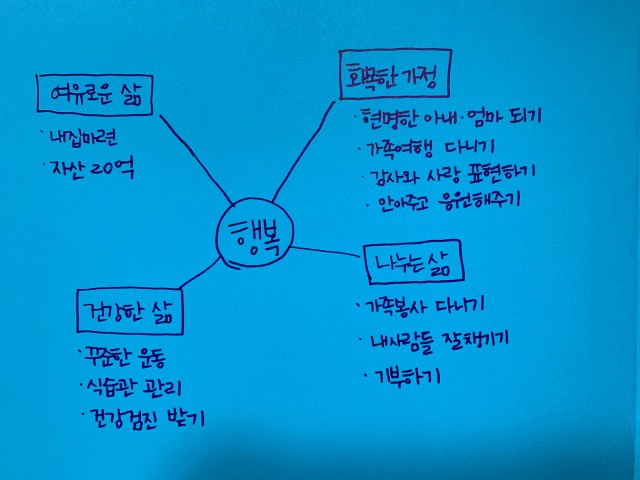 여유로운 삶
· 내집마련
· 자산 20억
화목한 가정
· 현명한 아내·엄마 되기
· 가족여행 다니기
· 감사와 사랑 표현하기
· 안아주고 응원해주기
행복
건강한 삶
· 꾸준한 운동
· 식습관 관리
· 건강검진 받기
나누는 삶
· 가족봉사 다니기
· 내사람들 잘챙기기
· 기부하기